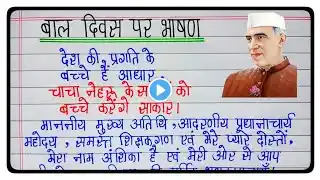 बाल दिवस पर भाषण
देश की प्रगति के
बच्चे हैं आधार
चाचा नेहरू के को
बच्चे करेंगे साकार।
माननीय मुख्य अतिथि, आदरणीय प्रधानाचार्य
महोदय, समस्त शिक्षकगण एवं मेरे प्यारे दोस्तों,
मेरा नाम अंशिका है एवं मेरी ओर से आप